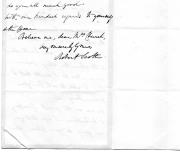 do you all much good
with our kind regards to yourself
Believe me, dear Mrs Church,
very sincerely yours,
Robert Scott